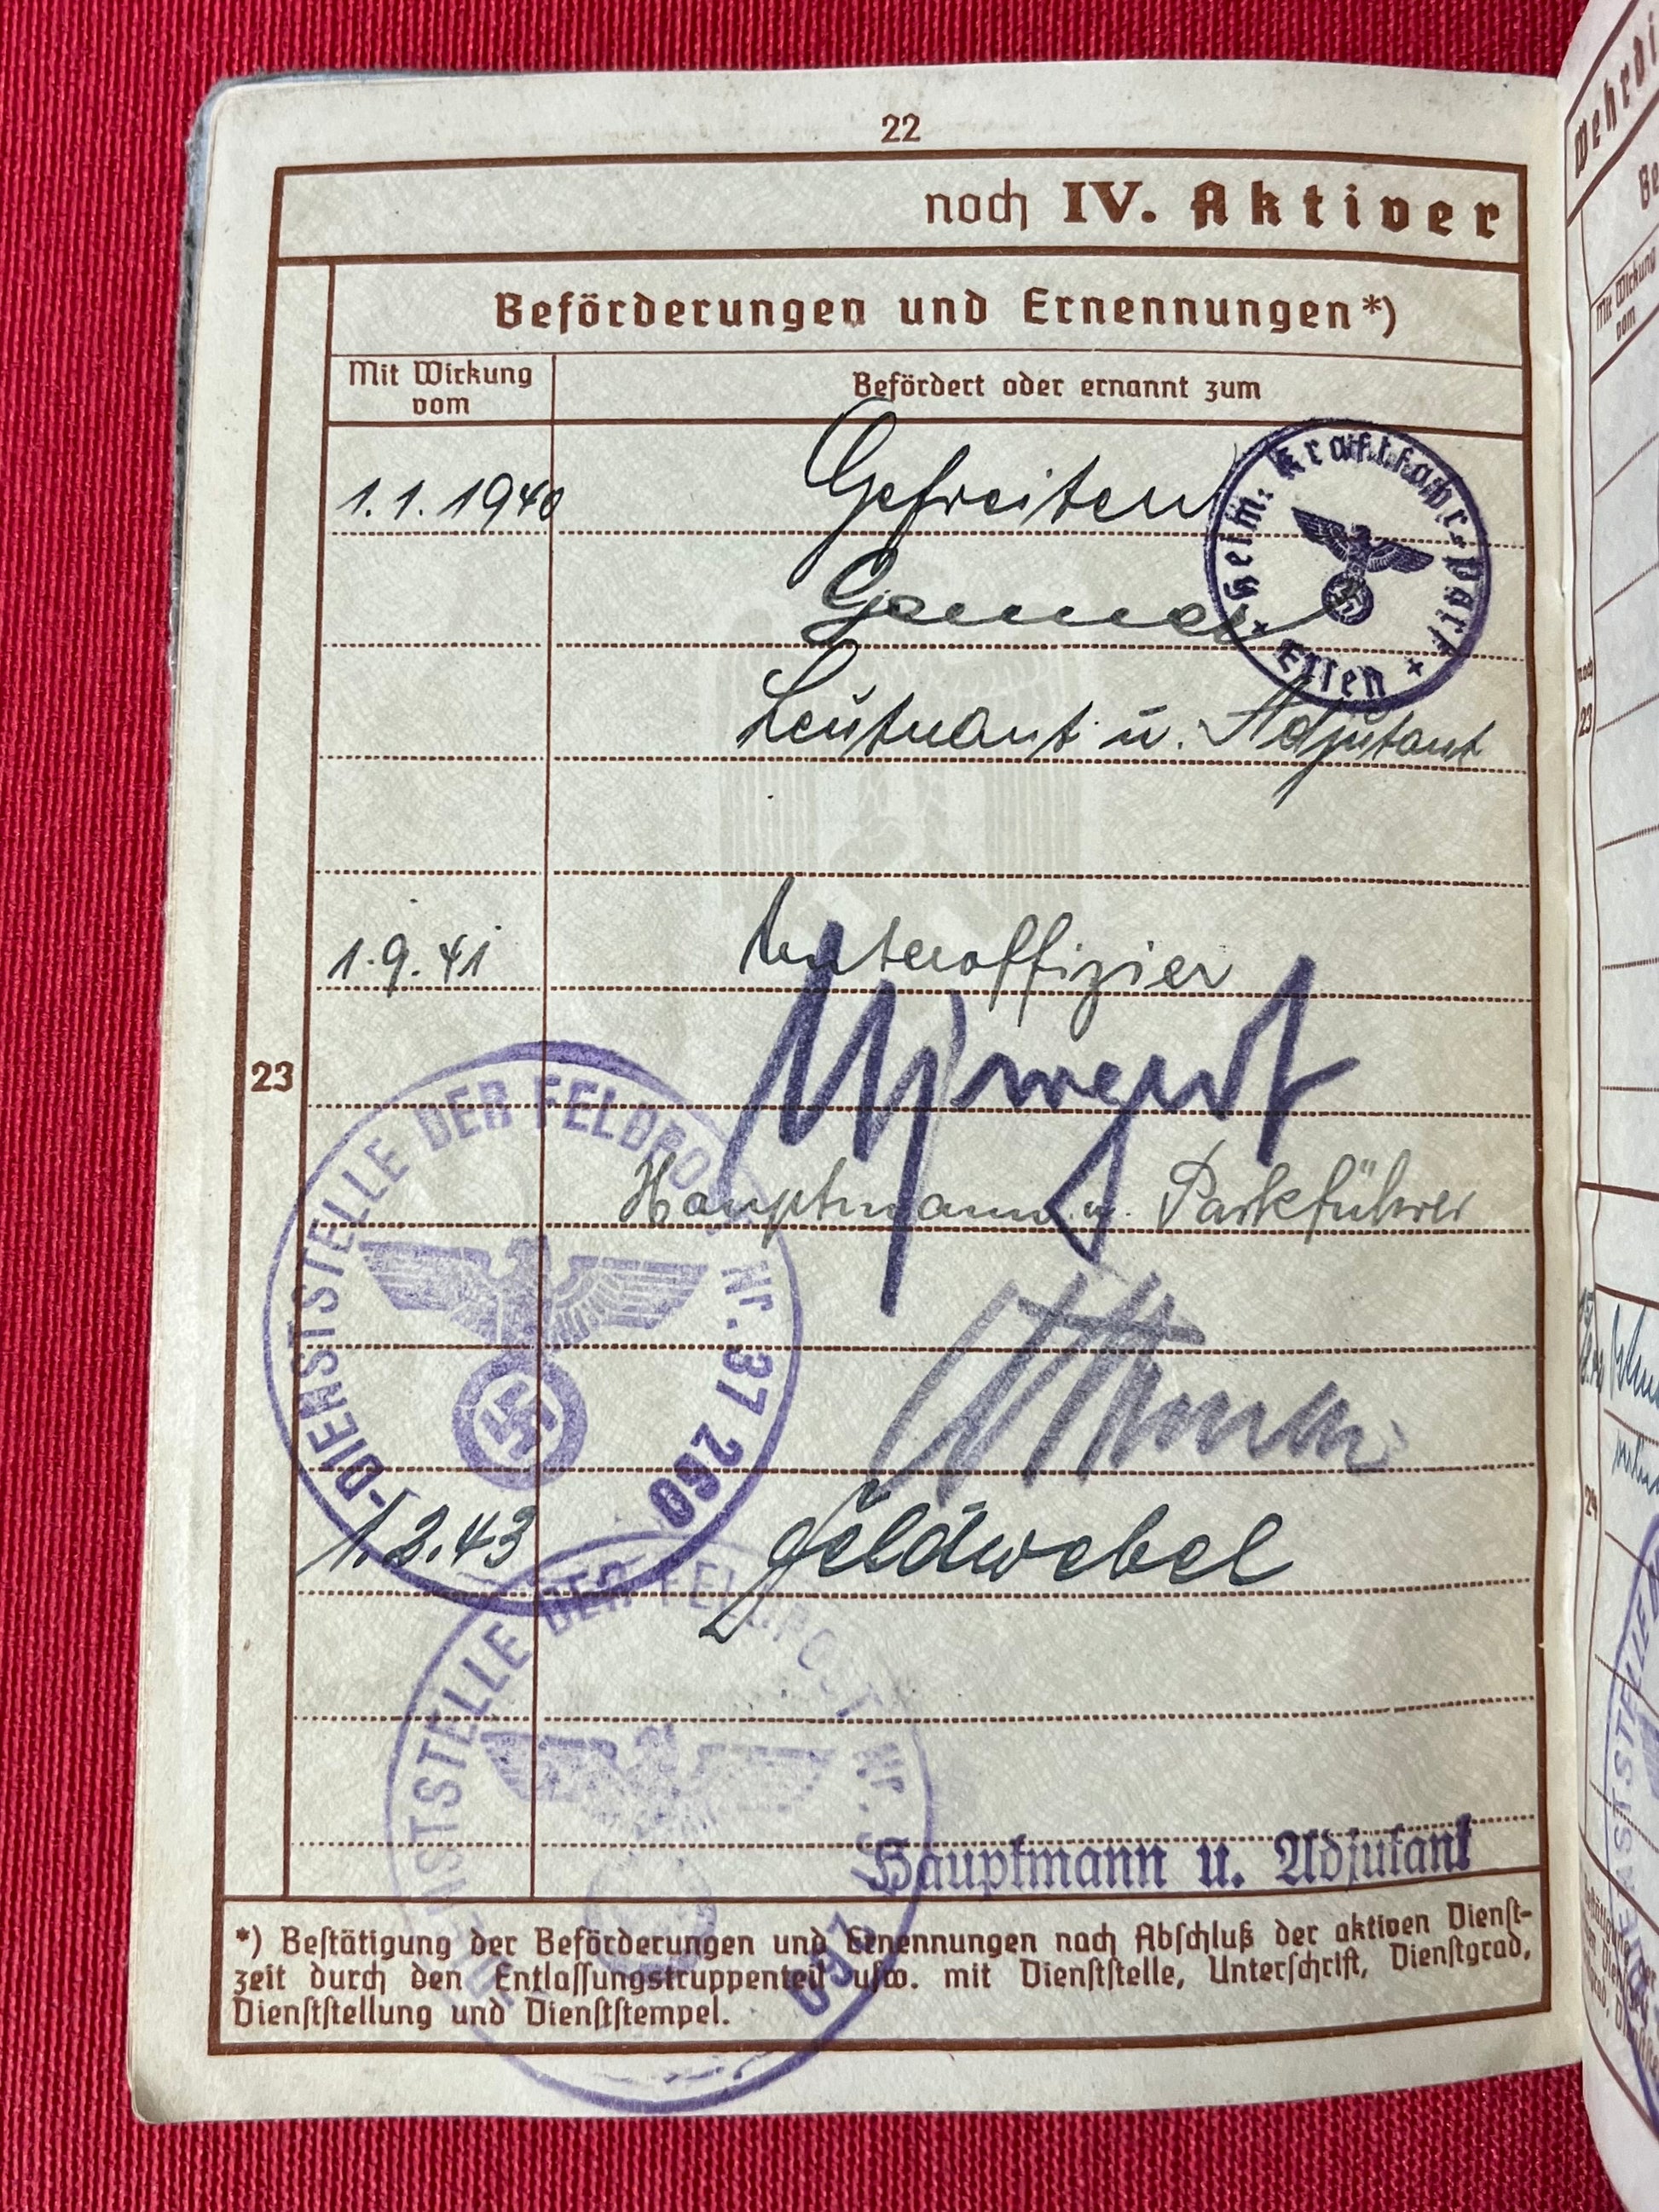 22
noch IV. Aktiver
Beförderungen und Ernennungen *)
Mit Wirkung vom
Befördert oder ernannt zum
1.1.1940 Gefreiten
Heim. Kraftfahrpark
Essen
Leutnant u. Adjutant
1.9.41 Unteroffizier
23
Hauptmann u. Parkführer
DIENSTSTELLE DER FELDPOST Nr. 37 260
1.2.43 Feldwebel
DIENSTSTELLE DER FELDPOST Nr.
260
Hauptmann u. Adjutant
*) Bestätigung der Beförderungen und Ernennungen nach Abschluß der aktiven Dienst-
zeit durch den Entlassungstruppenteil usw. mit Dienststelle, Unterschrift, Dienstgrad,
Dienststellung und Dienststempel.
Mit Wirkung
vom
23
24